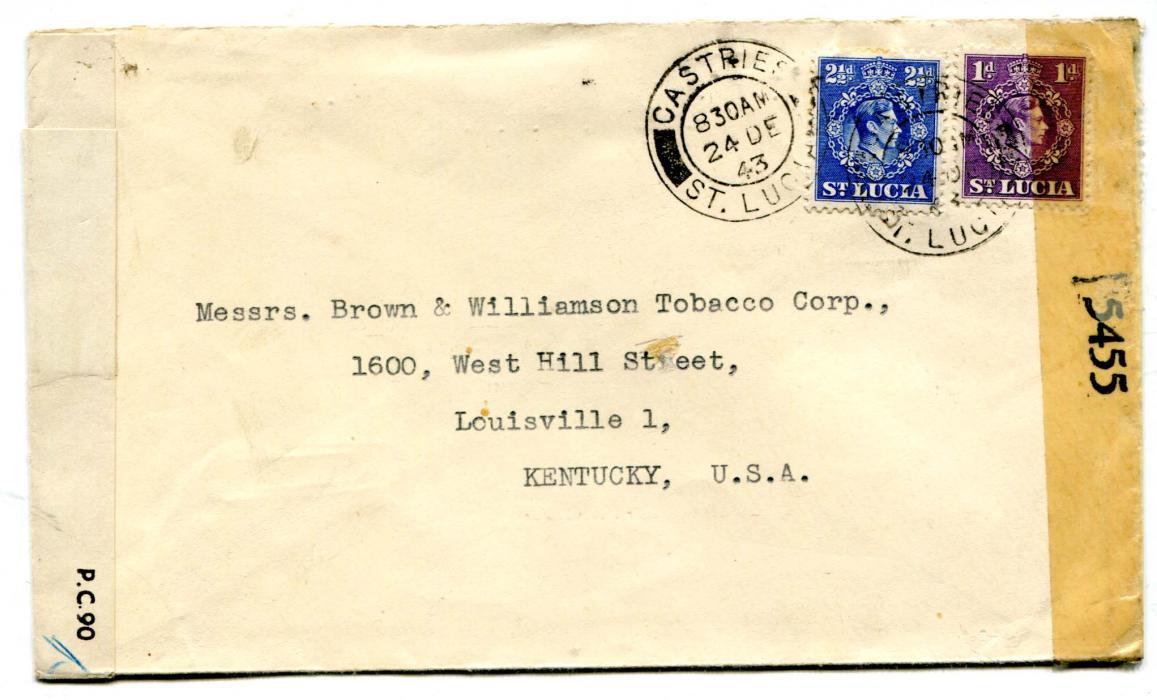 CASTRIES
8 30 AM
24 DE
43
ST. LUCIA
2½d 2½d
ST LUCIA
1d. 1d.
ST LUCIA
ST. LUCI
5455
Messrs. Brown & Williamson Tobacco Corp.,
1600, West Hill Street,
Louisville 1,
KENTUCKY, U.S.A.
P.C.90